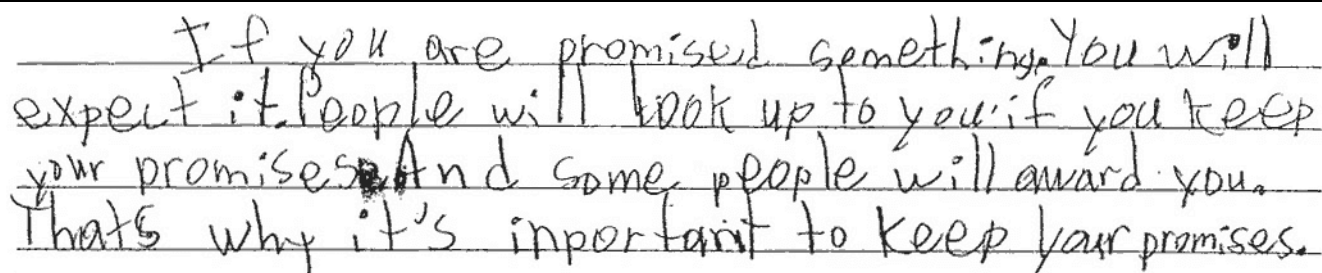 If you are promised something. You will
expect it. People will look up to you if you keep
your promises. And some people will award you.
Thats why it's inportant to keep your promises.